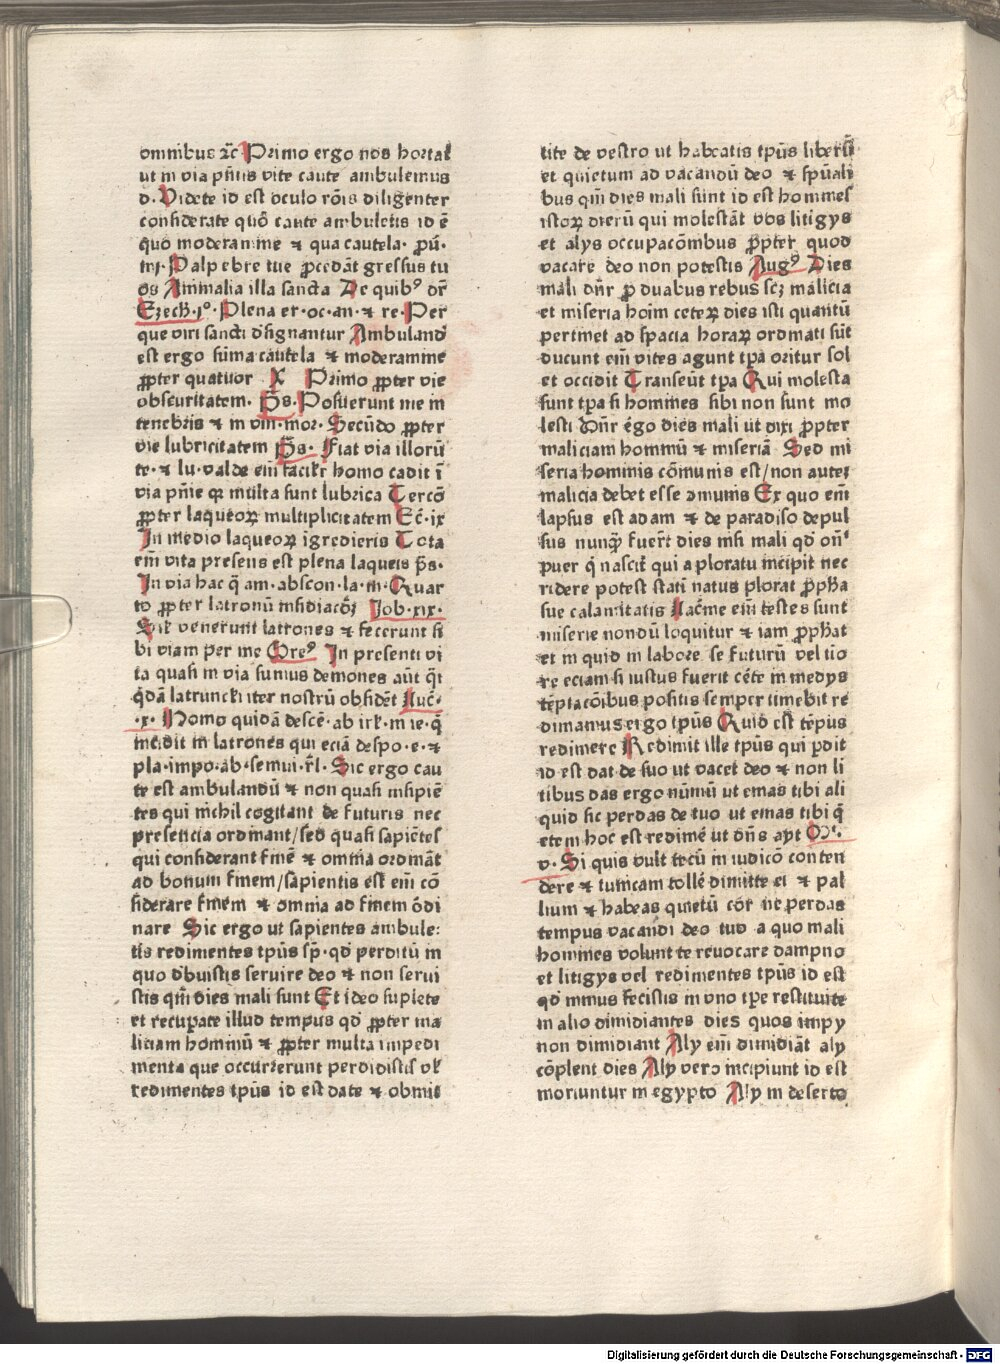 omnibus ⁊c̄ Primo ergo nos hortat̄
ut in via pn̄tis vite caute ambulemus
d. Videte id est oculo rōis diligenter
considerate quō caute ambuletis id ē
quo moderamine ⁊ qua cautela. ꝓū.
iiij. Palpebre tue ꝓcedāt gressus tu
os Animalia illa sancta De quibꝰ dr̄
Ezech. iº. Plena er. oc. an. ⁊ re. Per
que viri sancti dsignantur Ambuland
est ergo sūma cautela ⁊ moderamine
ꝓpter quatuor X Primo ꝓpter vie
obscuritatem. p̄s. Posuerunt me in
tenebris ⁊ in vm. mor. Secūdo ꝓpter
vie lubricitatem p̄s. Fiat via illorū
te. ⁊ lu. valde em̄ facilr̄ homo cadit ī
via pn̄ie qꝛ multa sunt lubrica Tercō
ꝓpter laqueoꝝ multiplicitatem Ec̄. ix
In medio laqueoꝝ igredieris Tota
em̄ vita presens est plena laqueis p̄s.
In via hac q̄ am. abscon. la. m. Quar
to ꝓpter latronū insidiacōꝫ Job. xix.
Sil̄ venerunt latrones ⁊ fecerunt si
bi viam per me Greꝰ In presenti vi
ta quasi in via sumus demones aūt q̄si
q̄dā latrunculi iter nostrū obsidēt Luc̄.
.x. Homo quidā descē. ab irl̄. in ie. q̄
incidit in latrones qui eciā despo. e. ⁊
pla. impo. ab. semui. rl̄. Sic ergo cau
te est ambulandū ⁊ non quasi insipiē
tes qui nichil cogitant de futuris nec
presencia ordinant/sed quasi sapiētes
qui considerant finē ⁊ omnia ordināt
ad bonum finem/sapientis est em̄ cō
siderare finem ⁊ omnia ad finem ōdi
nare Sic ergo ut sapientes ambule:
tis redimentes tp̄us sp̄. qd̄ perditū in
quo dbuistis seruire deo ⁊ non serui
stis qm̄ dies mali sunt Et ideo suplete
et recuꝑate illud tempus qd̄ ꝓpter ma
liciam hominū ⁊ ꝓpter multa impedi
menta que occurrerunt perdidistis vl̄
redimentes tp̄us id est date ⁊ obmit
tite de vestro ut habeatis tp̄us liberū
et quietum ad vacandū deo ⁊ sp̄uali
bus qm̄ dies mali sunt id est homines
istoꝝ dierū qui molestāt vos litigijs
et alijs occupacōnibus ꝓpter quod
vacare deo non potestis Augꝰ Dies
mali dn̄r ꝓ duabus rebus scꝫ malicia
et miseria hoim̄ ceteꝝ dies isti quantū
pertinet ad spacia horaꝝ ordinati sūt
ducunt em̄ vites agunt tp̄a oritur sol
et occidit Transeūt tp̄a Qui molesta
sunt tp̄a si homines sibi non sunt mo
lesti Dn̄r ergo dies mali ut dixi ꝓpter
maliciam hominū ⁊ miseriā Sed mi
seria hominis cōmunis est/non autem
malicia debet esse ↄmunis Ex quo em̄
lapsus est adam ⁊ de paradiso depul
sus nunq̄ fuert̄ dies nisi mali qd̄ on̄ꝰ
puer q̄ nascit̄ qui a ploratu incipit nec
ridere potest stati natus plorat ꝓph̄a
sue calamitatis Lac̄me em̄ testes sunt
miserie nondū loquitur ⁊ iam ꝓph̄at
et in quid in labore se futurū vel timo
re eciam si iustus fuerit c̄te in medijs
tēptacōibus positis semper timebit re
dimamus ergo tp̄us Quid est tēpus
redimere Redimit ille tp̄us qui ꝑdit
id est dat de suo ut vacet deo ⁊ non li
tibus das ergo nūmū ut emas tibi ali
quid sic perdas de tuo ut emas tibi q̄
etem hoc est redimē ut dn̄s ayt Mt̄.
v. Si quis vult tecū in iudicō conten
dere ⁊ tunicam tollē dimitte ei ⁊ pal
lium ⁊ habeas quietū cor ne perdas
tempus vacandi deo tuo a quo mali
homines volunt te reuocare dampno
et litigijs vel redimentes tp̄us id est
qd̄ minus fecistis in vno tp̄e restituite
in alio dimidiantes dies quos impij
non dimidiant Alij em̄ dimidiāt alij
cōplent dies Alij vero incipiunt id est
moriuntur in egypto Alij in deserto
Digitalisierung gefördert durch die Deutsche Forschungsgemeinschaft - DFG